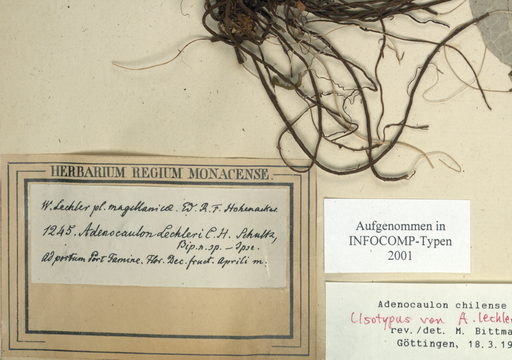 HERBARIUM REGIUM MONACENSE.
W. Lechler pl. magellanicæ. Ed. R. F. Hohenacker.
1245. Adenocaulon Lechleri C. H. Schultz,
Bip. n. sp. — Ipse.
Ad portum Port Famine. Flor. Dec. fruct. Aprili m.
Aufgenommen in
INFOCOMP-Typen
2001
Adenocaulon chilense
(Isotypus von A. lechle
rev./det. M. Bittma
Göttingen, 18.3.19